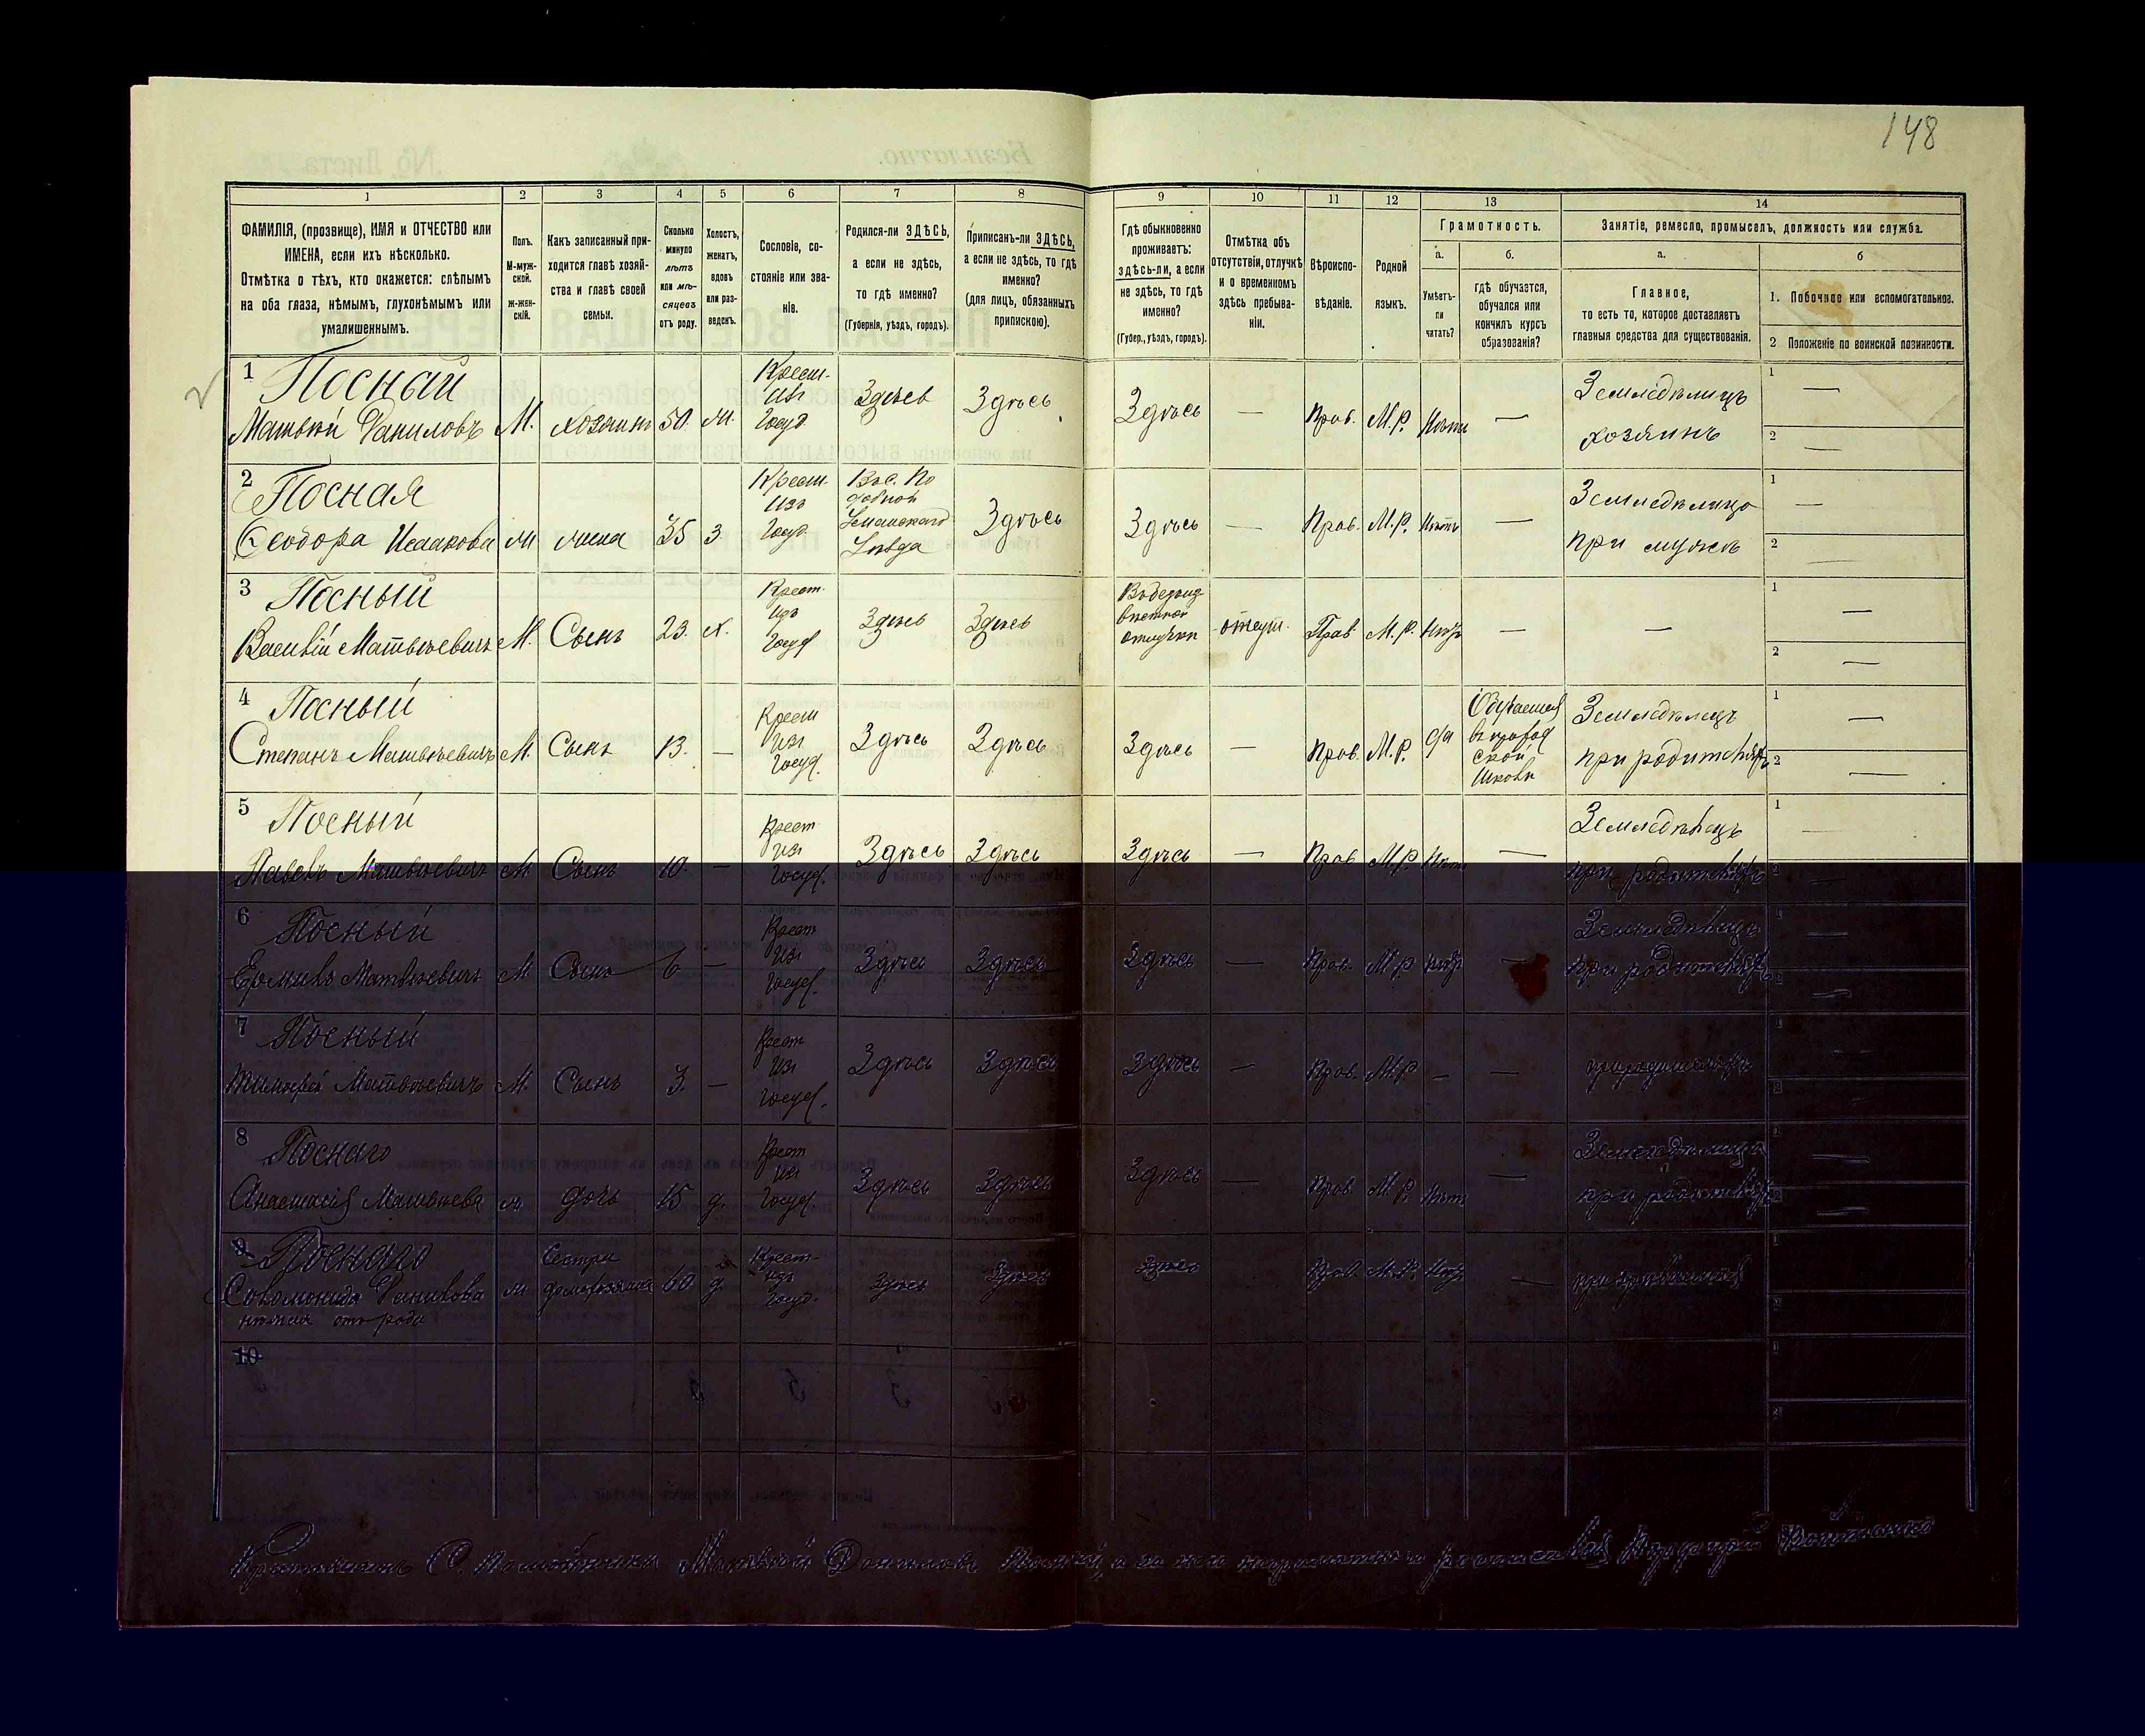 148
1 2 3 4 5 6 7 8 9 10 11 12 13 14
ФАМИЛІЯ, (прозвище), ИМЯ и ОТЧЕСТВО или
ИМЕНА, если ихъ нѣсколько.
Отмѣтка о тѣхъ, кто окажется: слѣпымъ
на оба глаза, нѣмымъ, глухонѣмымъ или
умалишеннымъ.
Полъ.
М-муж-
ской.
Ж-жен-
скій.
Какъ записанный при-
ходится главѣ хозяй-
ства и главѣ своей
семьи.
Сколько
минуло
лѣтъ
или мѣ-
сяцевъ
отъ роду.
Холостъ,
женатъ,
вдовъ
или раз-
веденъ.
Сословіе, со-
стояніе или зва-
ніе.
Родился-ли ЗДѢСЬ,
а если не здѣсь,
то гдѣ именно?
(Губернія, уѣздъ, городъ).
Приписанъ-ли ЗДѢСЬ,
а если не здѣсь, то гдѣ
именно?
(для лицъ, обязанныхъ
припискою).
Гдѣ обыкновенно
проживаетъ:
здѣсь-ли, а если
не здѣсь, то гдѣ
именно?
(Губер., уѣздъ, городъ).
Отмѣтка объ
отсутствіи, отлучкѣ
и о временномъ
здѣсь пребыва-
ніи.
Вѣроиспо-
вѣданіе.
Родной
языкъ.
Грамотность.
а.
Умѣетъ-
ли
читать?
б.
гдѣ обучается,
обучался или
кончилъ курсъ
образованія?
Занятіе, ремесло, промыселъ, должность или служба.
а.
Главное,
то есть то, которое доставляетъ
главныя средства для существованія.
б
1. Побочное или вспомогательное.
2 Положеніе по воинской повинности.
1 Посный
Матвѣй Даниловъ М. хозяинъ 50. Крест. Госуд. Здѣсь Здѣсь Здѣсь — Прав. М.Р. Нѣтъ — Земледѣлецъ
хозяинъ
1 —
2 —
2 Посная
Ѳеодора Исаакова жена 35 З. Крест. Изъ Госуд. Уѣзда Здѣсь Здѣсь — Прав. М.Р. Нѣтъ —
при мужѣ
1 —
2 —
3 Посный
Василій Матвѣевичъ М. Сынъ 23. х. Крест. Изъ Госуд Здѣсь Здѣсь отсут. Прав М.Р. Нѣтъ — —
1 —
2 —
4 Посный
Степанъ Матвѣевичъ М. Сынъ 13. — Крест Изъ Госуд. Здѣсь Здѣсь Здѣсь — Прав. М.Р. да Обучается Школѣ Земледѣлецъ
при родителяхъ
1 —
2 —
5 Посный
Павелъ Матвѣевичъ М Сынъ 10. — Крест Изъ Госуд. Здѣсь Здѣсь Здѣсь — Прав М.Р. Нѣтъ — Земледѣлецъ
при родителяхъ
1
2 —
6 Посный
Матвѣевичъ М Сынъ 6 — Крест Изъ Госуд. Здѣсь Здѣсь Здѣсь — Прав. М.Р Нѣтъ — Земледѣлецъ
при родителяхъ
1 —
2 —
7 Посный
Тимофей Матвѣевичъ М. Сынъ 3. — Крест Изъ Госуд. Здѣсь Здѣсь Здѣсь — Прав. М.Р. — — при родителяхъ
1
2
8 Поснаго
Анастасія Матвѣева дочь 15 д. Крест Изъ Госуд. Здѣсь Здѣсь Здѣсь — Прав М.Р. Нѣтъ —
при родителяхъ
1 —
2 —
9 Поснаго
Соломонида Данилова Сестра домохозяина 60 д. Крест. Изъ Госуд. Здѣсь Здѣсь Здѣсь Прав. М.Р. Нѣтъ —
нѣмая отъ роду
1
2
10
1
2
Матвѣй Даниловъ Посный, а за него неграмотнаго росписался